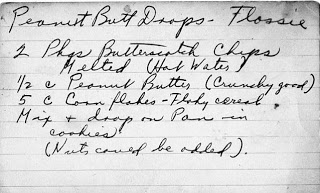 Peanut Butt Drops - Flossie
2 Pkgs Butterscotch Chips
Melted (Hot Water)
1/2 c Peanut Butter (Crunchy good)
5 c Corn flakes - Flaky cereal
Mix + drop on Pan - in
cookies
(Nuts could be added).